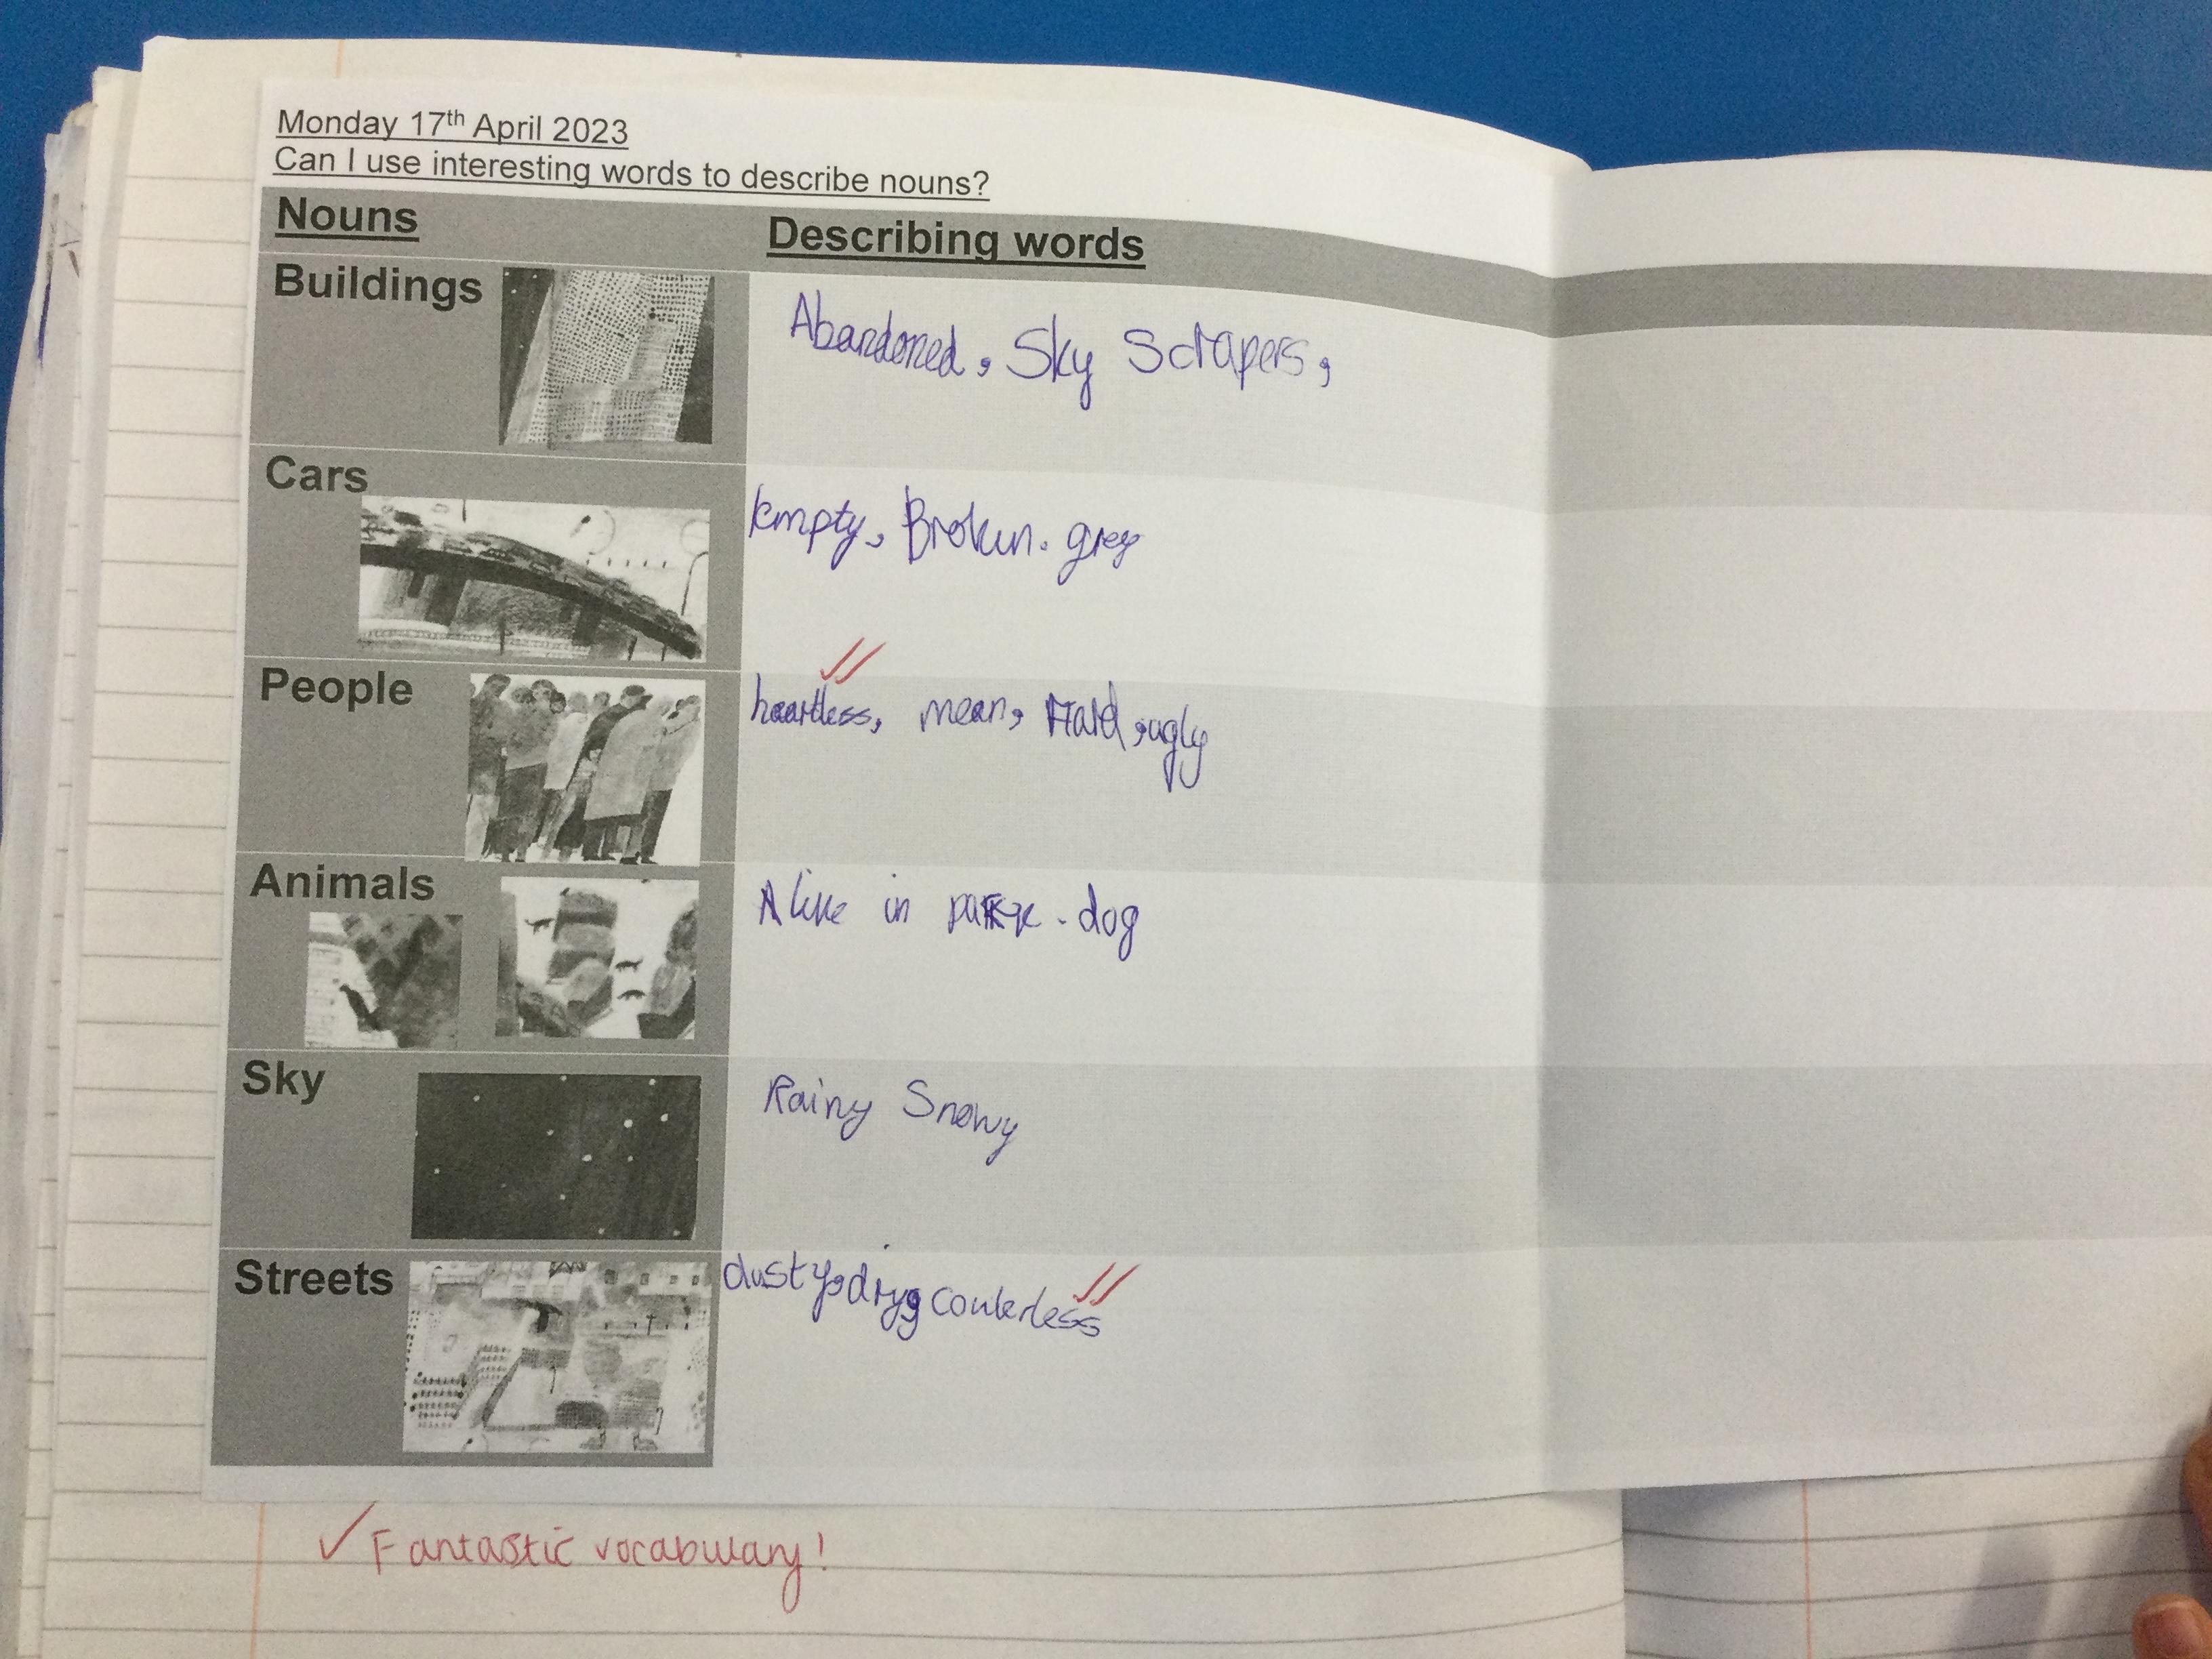 Monday 17th April 2023
Can I use interesting words to describe nouns?
Nouns Describing words
Buildings
Abandoned, Sky Scrapers,
Cars
Empty, Broken. grey
People
heartless, mean, Hard, ugly
Animals
Alive in park - dog
Sky
Rainy Snowy
Streets
dusty, dry, coulerless
✓ Fantastic vocabulary!